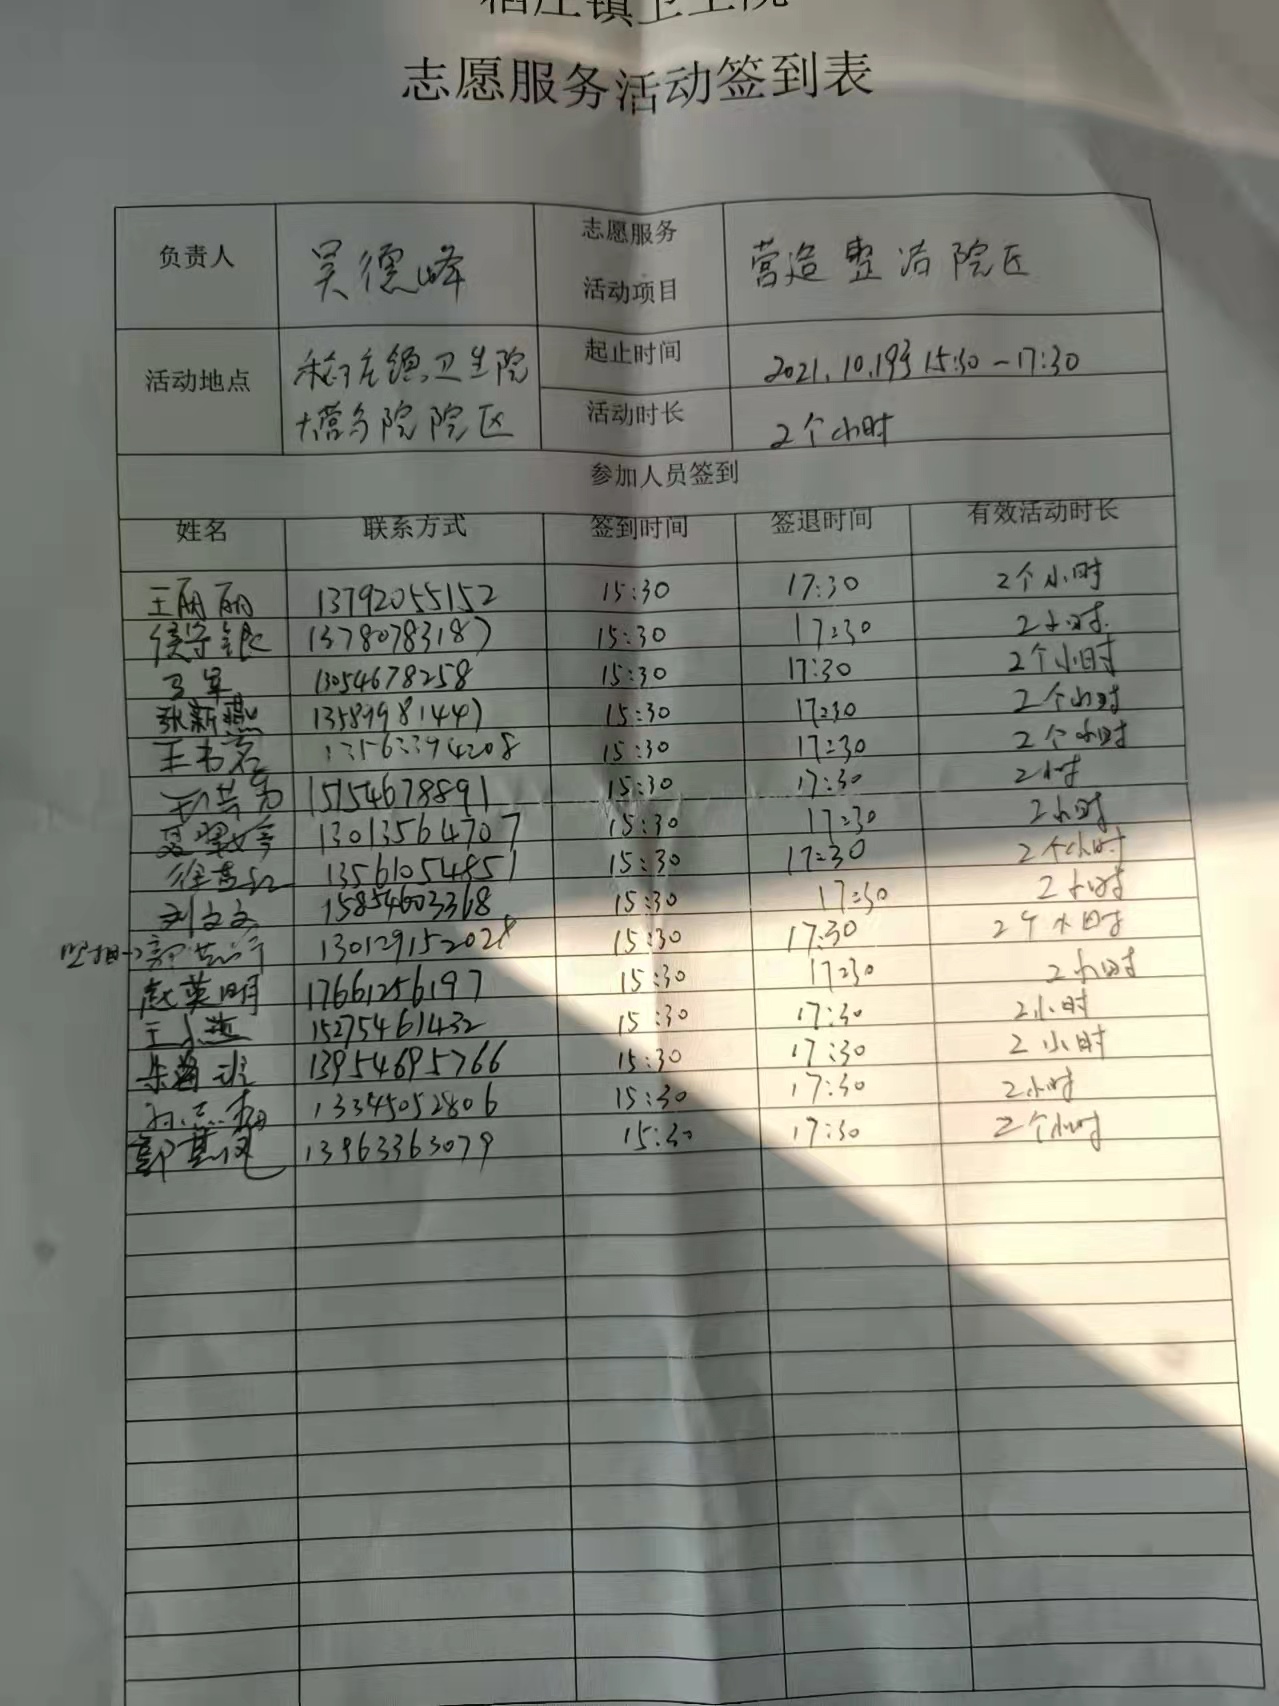 稻庄镇卫生院
志愿服务活动签到表
负责人 吴德峰 志愿服务活动项目 营造整洁院区
活动地点 稻庄镇卫生院大营分院院区 起止时间 2021.10.19号 15:30-17:30
活动时长 2个小时
参加人员签到
姓名 联系方式 签到时间 签退时间 有效活动时长
王丽丽 13792055152 15:30 17:30 2个小时
侯守银 13780783187 15:30 17:30 2小时.
军 13054678258 15:30 17:30 2个小时
张新燕 13589981447 15:30 17:30 2个小时
王书君 15:30 17:30 2个小时
15154678891 15:30 17:30 2小时
13013564707 15:30 17:30 2小时
13561054851 15:30 17:30 2个小时
刘文文 15854603368 15:30 17:30 2小时
郭 13012915202 15:30 17:30 2个小时
赵英明 17661256197 15:30 17:30 2小时
王 燕 15275461432 15:30 17:30 2小时
朱 13954695766 15:30 17:30 2小时
13345052806 15:30 17:30 2小时
郭 13963363079 15:30 17:30 2个小时